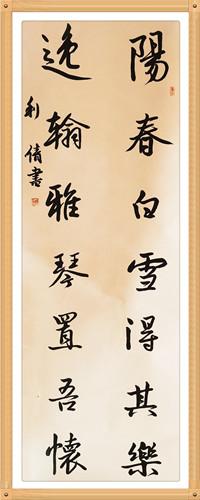 陽春白雪得其樂
逸翰雅琴置吾懷
利倩書